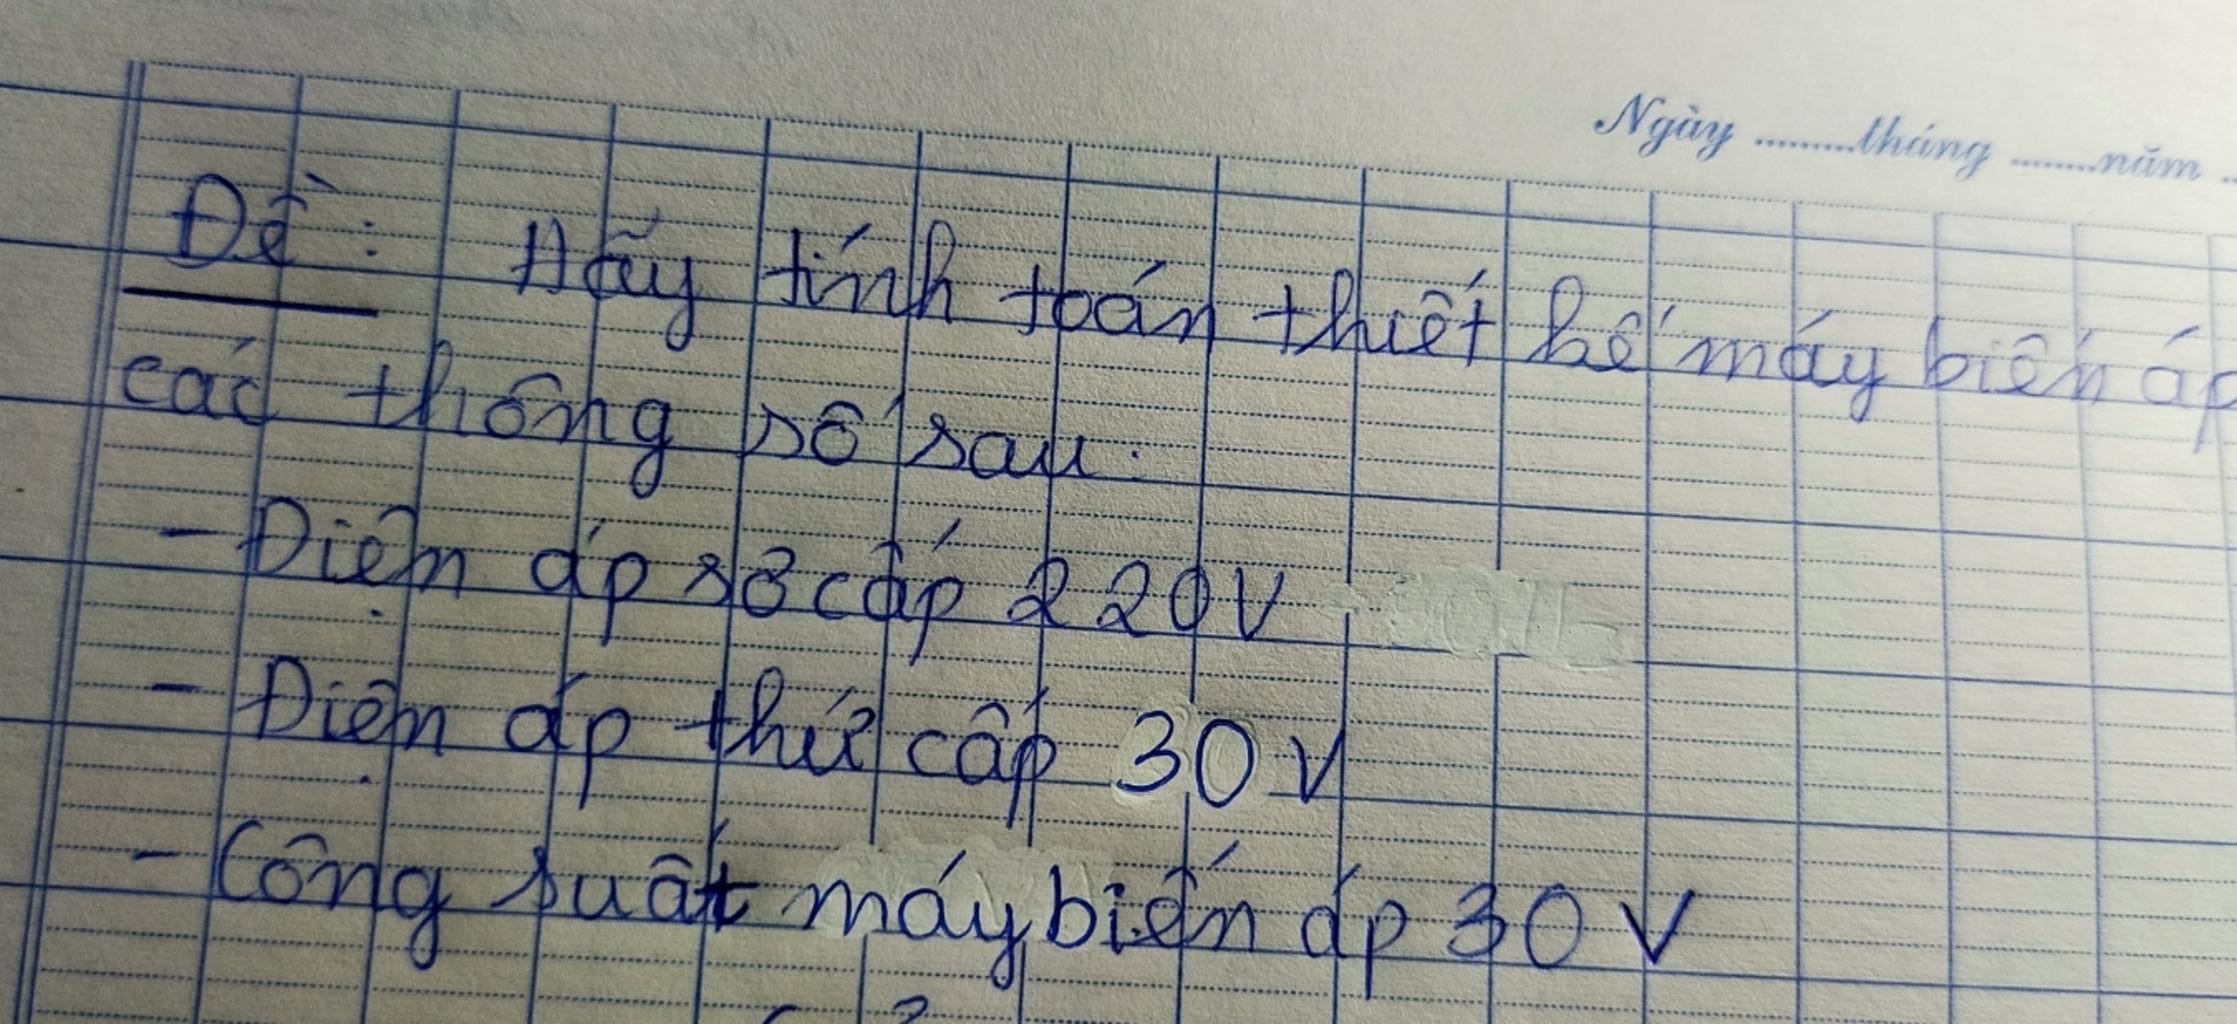 Ngày ........tháng .......năm ..
Đề: Hãy tính toán thiết kế máy biến áp
các thông số sau:
- Điện áp sơ cấp 220V
- Điện áp thứ cấp 30V
- Công suất máy biến áp 30 V